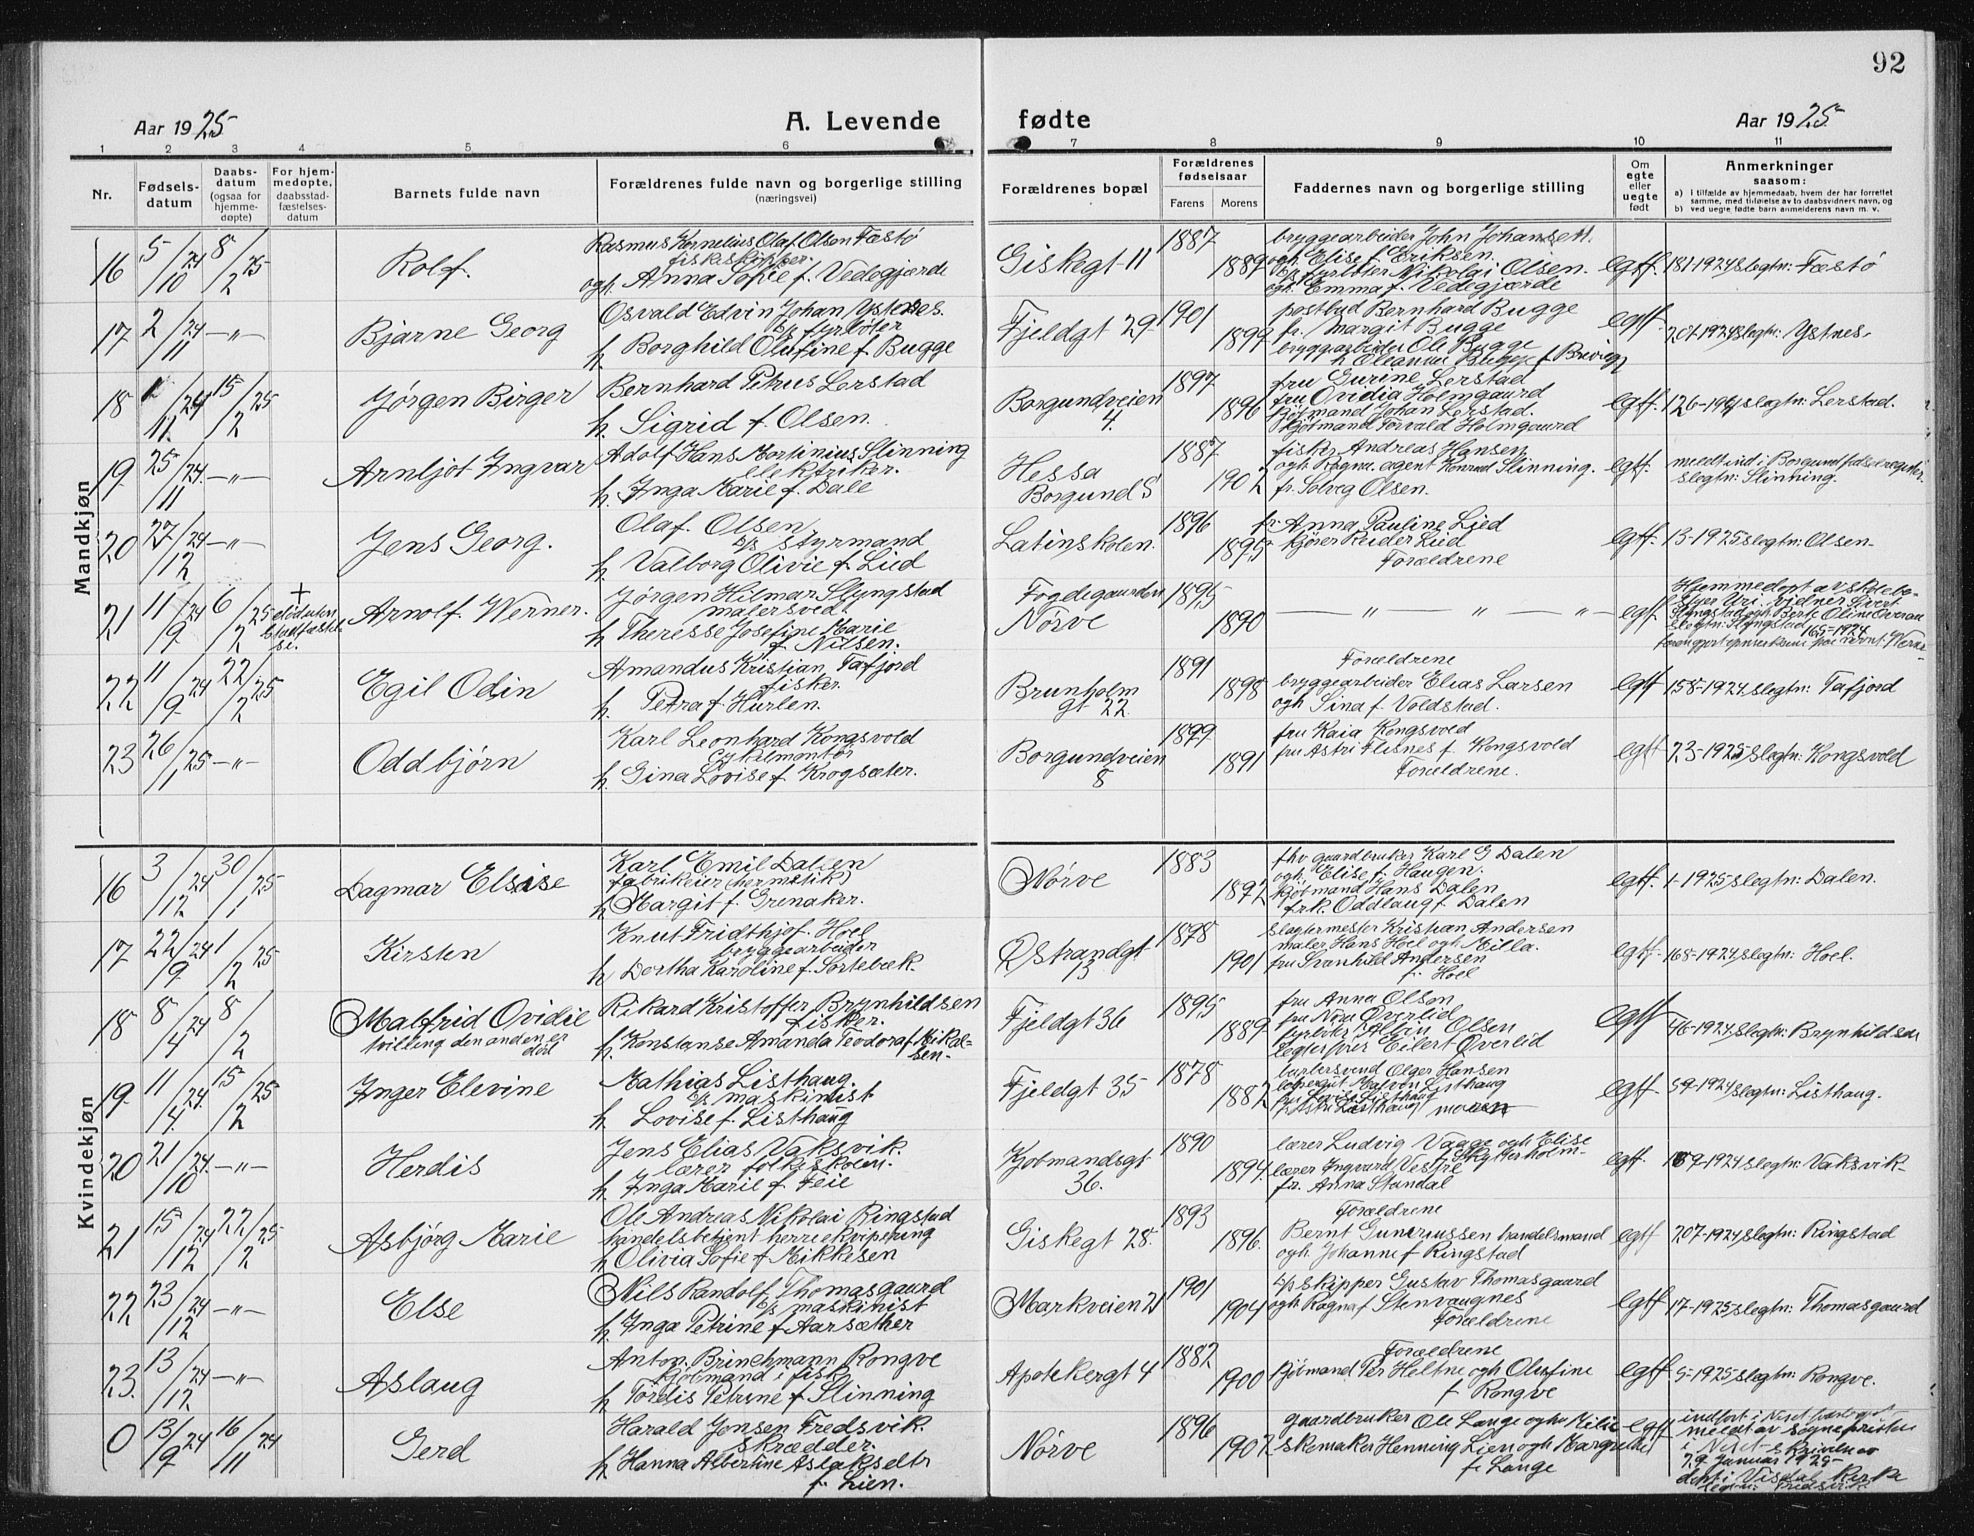 92
Aar 1925 A. Levende fødte Aar 1925
1 2 3 4 5 6 7 8 9 10 11
Nr. Fødsels-datum Daabs-datum (ogsaa for hjemme-døpte) For hjem-medøpte, daabsstad-fæstelses-datum Barnets fulde navn Forældrenes fulde navn og borgerlige stilling (næringsvei) Forældrenes bopæl Forældrenes fødselsaar Farens Morens Faddernes navn og borgerlige stilling Om egte eller uegte født Anmerkninger saasom:
a) I tilfælde av hjemmedaab, hvem der har forrettet samme, med tilføielse av to daabsvidners navn, og
b) ved uegte fødte barn anmelderens navn m. v.
Mandkjøn
16 5/10 24 8/2 25 Rolf. Rasmus Kornelius Olaf Olsen Fæstø
fiskeskipper.
ogh. Anna Sofie f. Vedegjærde
Giskegt 11 1887 1889
bryggearbeider John Johansen.
ogh Elise f. Eriksen.
b/s fyrbøter Nikolai Olsen.
ogh. Emma f. Vedegjærde
egtf. 181-1924 slegtn: Fæstø
17 2/11 24 —"— Bjarne Georg Osvald Edvin Johan Ystenes.
b/s fyrbøter
h. Borghild Olufine f Bugge
Fjeldgt 29 1901 1899
postbud Bernhard Bugge
fr. Margit Bugge
bryggearbeider Ole Bugge
h Oleanna Bugge f Breivig
egtf. 201-1924 slegtn: Ystnes.
18 1/11 24 15/2 25 Jørgen Birger Bernhard Petrus Lerstad
h. Sigrid f. Olsen.
Borgundveien 4. 1897 1896
fru Gurine Lerstad
fru Ovidia Holmgaard
kjøbmand Johan Lerstad.
kjøbmand Torvald Holmgaard
egtf. slegtn: Lerstad.
19 25/11 24. —"— Arnljot Ingvar Adolf Hans Martinius Slinning
elektriker.
h. Inga Marie f. Dale
Hessa Borgund S 1887 1902
fisker Andreas Hansen
ogh Ragna. agent Konrad Slinning.
fr. Solveig Olsen.
egtf. meldt ind i Borgund fødselsregister.
slegtn: Slinning.
20 27/12 24 —"— Jens Georg. Olaf Olsen
b/s styrmand
h Valborg Olivie f Lied
Latinskolen. 1896 1895
fr. Anna Pauline Lied
kjører Reidar Lied
Forældrene
egtf. 13-1925 slegtn: Olsen-
21 11/9 24 6/2 25 Arnolf. Werner. Jørgen Hilmar Slyngstad
malersvend.
h Theresse Josefine Marie
f Nilsen.
Fogdegaarden Nørve 1895 1890
— " — " — " —
egtf Hjemmedøpt av skolebe-
styrer Uri. vidner Sivert
Slyngstad og Berte Oline Overaa
slegtn: Slyngstad 165-1924
22 11/9 24 22/2 25 Egil Odin Amandus Kristian Tafjord
fisker.
h. Petra f. Hurlen.
Brunholm gt 22 1891 1898
Forældrene
bryggearbeider Elias Larsen
ogh Sina f Voldstad.
egtf 158-1924 slegtn: Tafjord
23 26/1 25 —"— Oddbjørn Karl Leonhard Kongsvold
Cykelmontør
h. Gina Lovise f. Krogsæter.
Borgundveien 8 1899 1891
fru Kaia Kongsvold
fru Astri Flisnes f. Kongsvold
Forældrene.
egtf 23-1925 slegtn: Kongsvold
Kvindekjøn
16 3/12 24 30/1 25 Dagmar Elsise Karl Emil Dalen
fabrikeier (hermetik)
h Margit f. Grenaker.
Nørve 1883 1892
fhv gaardbruker Karl G Dalen
ogh. Elise f. Haugen.
kjøbmand Hans Dalen
frk. Oddlaug f Dalen
egtf. 1-1925 slegtn: Dalen.
17 22/9 24 1/2 25 Kirsten Knut Fridthjof. Hoel
bryggearbeider
h Dortha Karoline f. Sortebæk.
Ø Strandgt 13 1898 1901
slagtermester Kristian Andersen
maler Hans Hoel ogh. Milla.
fru Svanhild Andersen
f. Hoel
egtf. 168-1924 slegtn: Hoel.
18 8/4 24 8/2 Malfrid Ovidie
tvilling den anden er død
Rikard Kristoffer Brynhildsen
fisker.
h. Konstanse Amanda Teodora f. Mikal-
sen.
Fjeldgt 36 1895 1889
fru Anna Olsen
fru Nora Øverlid
Olsen
Eilert Øverlid
egtf 46-1924 slegtn: Brynhildsen
19. 11/4 24. 15/2 25 Inger Elevine Mathias Listhaug.
b/s maskinist
h Lovise f. Listhaug
Fjeldgt 35 1878 1882
barbersvend Olger Hansen
Listhaug
fru Lovise Listhaug
moren
egtf. 59-1924 slegtn: Listhaug.
20 21/10 24. —"— Herdis Jens Elias Vaksvik.
lærer folkeskolen.
h. Inga Marie f Feie
Kjøbmandsgt 36. 1890 1894
lærer Ludvig Vagge ogh Elise
f Skytterholm.
lærer Ingvard Vestre
fr. Anna Standal
egtf. 189-1924 slegtn: Vaksvik
21 15/12 24 22/2 25 Asbjørg Marie Ole Andreas Nikolai Ringstad
handelsbetjent herreekvipering
h Olivia Sofie f Mikkelsen
Giskegt 28. 1893 1896.
Forældrene
Bernt Gunnriussen handelsmand
ogh. Johanne f Ringstad
egtf 207-1924 slegtn: Ringstad
22 23/12 24 —"— Else Nils Randolf Thomasgaard
b/s maskinist
h. Inga Petrine f Aarsæther
Markveien 21 1901 1904
s/s skipper Gustav Thomasgaard
ogh. Ragna f Stenvaagnes
Forældrene
egtf 17-1925 slegtn: Thomasgaard
23. 13/12 24 —"— Aslaug Anton Brinchmann Rongve
kjøbmand i fisk
h Tordis Petrine f Slinning
Apotekergt 4 1882 1900
Forældrene
kjøbmand Per Heltne ogh Olufine
f Rongve
egtf 5-1925 slegtn: Rongve.
0 13/9 24 16/11 24 Gerd Harald Jensen Fredsvik.
skrædder.
h Hanna Albertine Aslaksdtr
f. Lien.
Nørve 1896 1902
gaardbruker Ole Lange ogh Milie
skomaker Henning Lien ogh Margrethe
f. Lange
egtf indført i Neset
meldt av sogneprésten
i Neset skrivelse av
29 januar 1925-
døpt i Visdal kirke
slegtn: Fredsvik